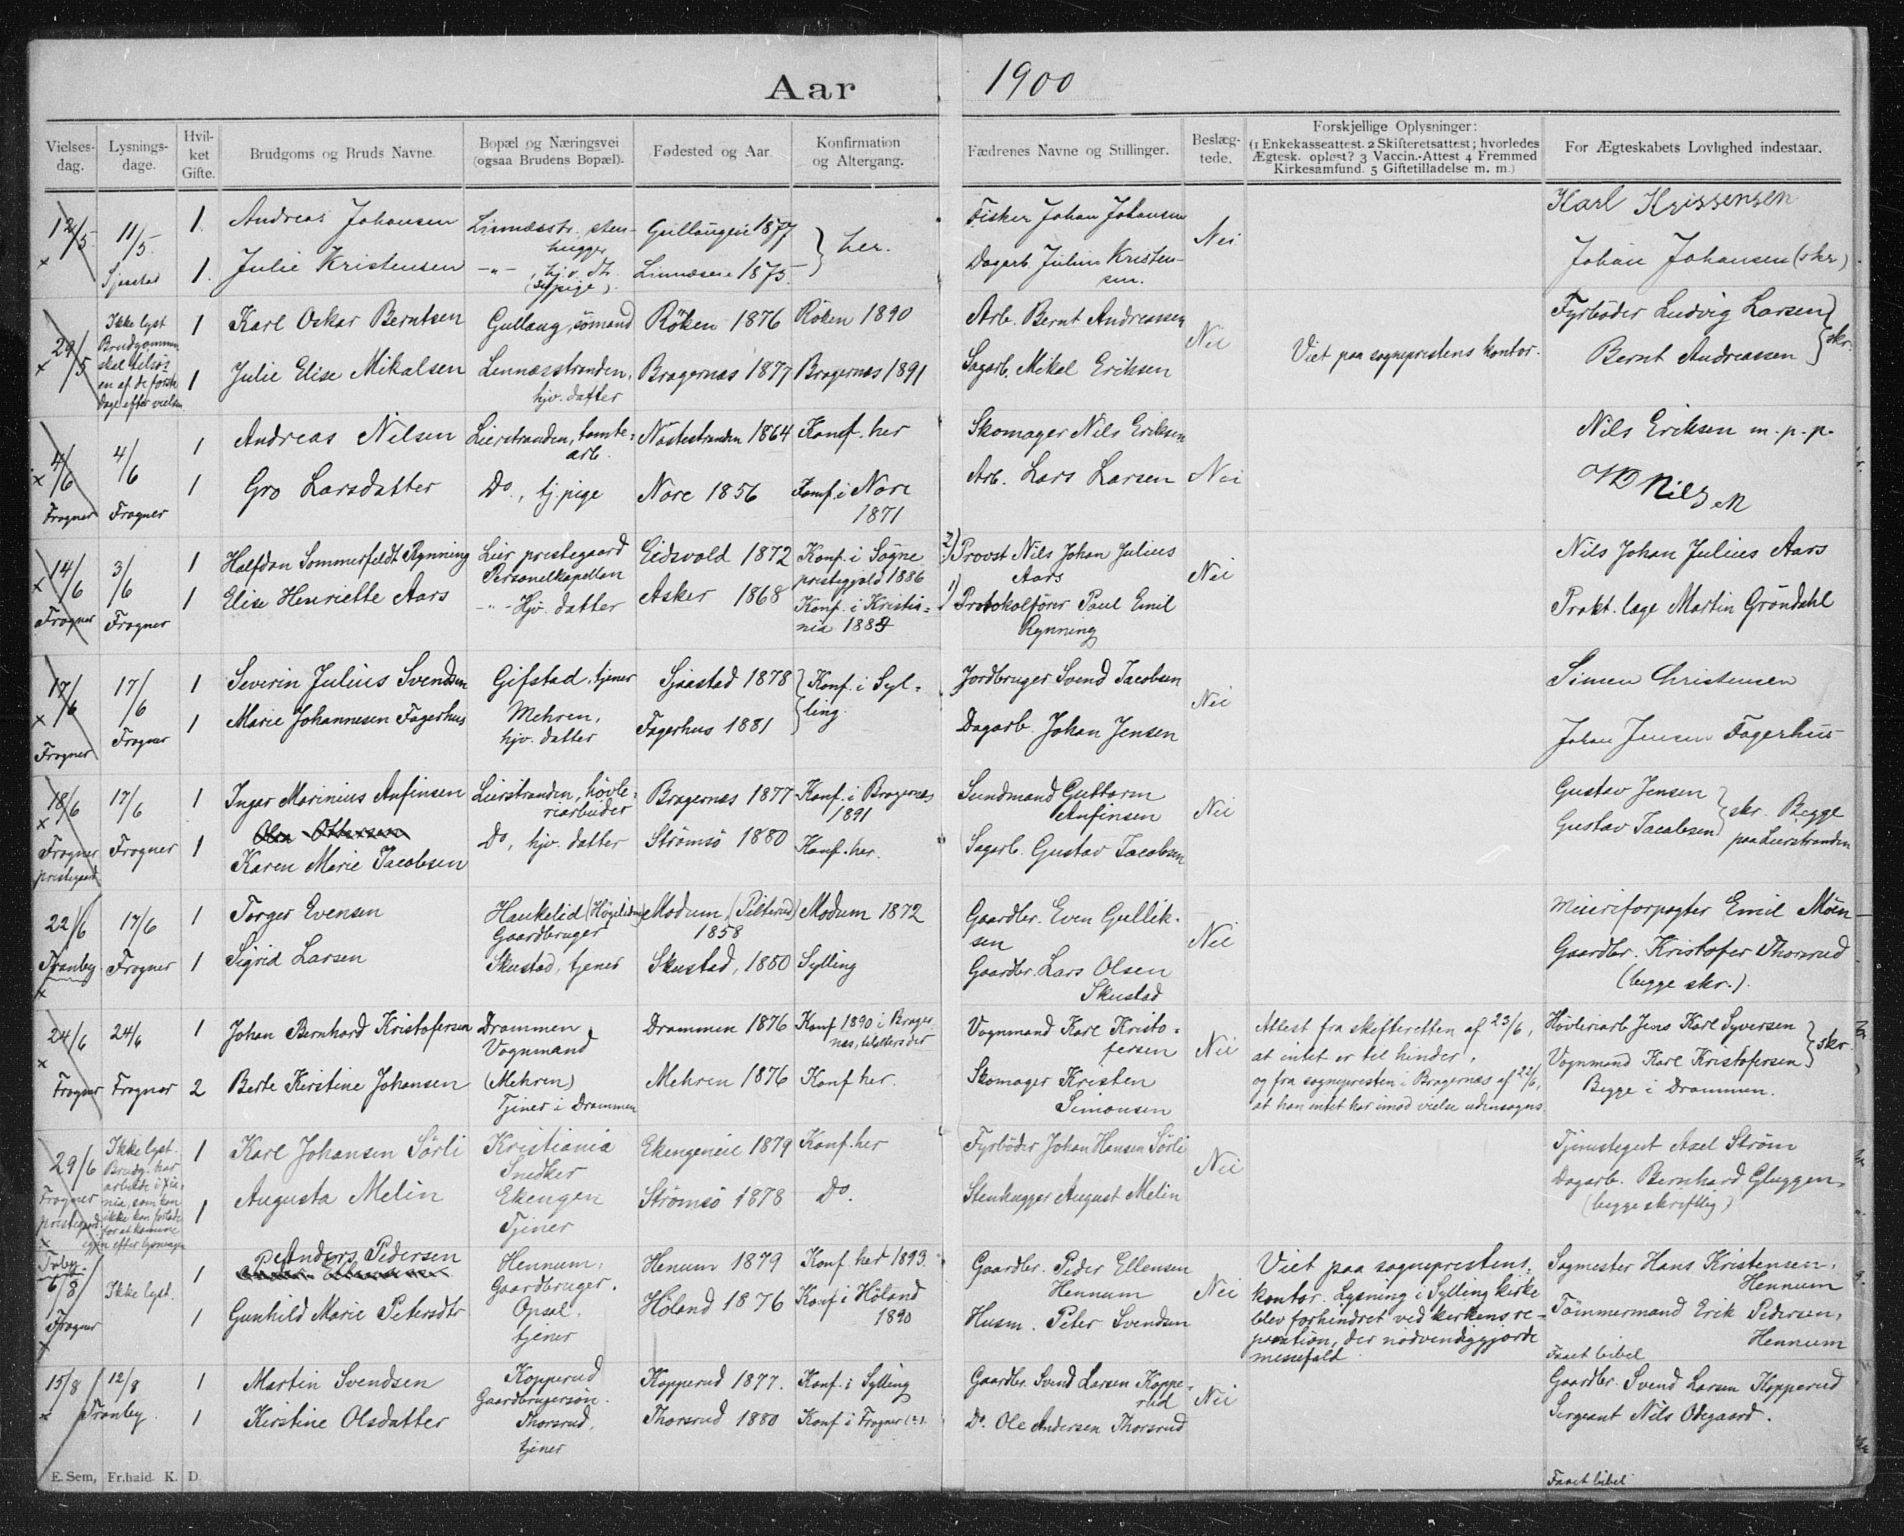 Aar 1900
Vielses-dag. Lysnings-dage. Hvil-ket Gifte. Brudgoms og Bruds Navne. Bopæl og Næringsvei (ogsaa Brudens Bopæl). Fødested og Aar. Konfirmation og Altergang. Fædrenes Navne og Stillinger. Beslæg-tede. Forskjellige Oplysninger: (1 Enkekasseattest. 2 Skifteretsattest; hvorledes Ægtesk. opløst? 3 Vaccin.-Attest 4 Fremmed Kirkesamfund. 5 Giftetilladelse m. m.) For Ægteskabets Lovlighed indestaar.
12/5 11/5 Sjaastad
1. Andreas Johansen Linnæsstr. sten-hugger Gullaugeie 1877 } her. Fisker Johan Johansen Nei Karl Krissensen
1. Julie Kristensen –"– , hjv. dt. (Sypige). Linnæseie 1875. Dagarb. Julius Kristen-sen. Johan Johansen (skr)
29/5 Ikke lyst Brudgommen skal tilsjøs en af de første dage efter vielsen
1 Karl Oskar Berntsen Gullaug, sömand Röken 1876 Röken 1890 Arb. Bernt Andreassen Nei Viet paa sogneprestens kontor. Fyrböder Ludvig Larsen } skr.
1 Julie Elise Mikalsen Linnæsstranden, hjv. datter Bragernæs 1877 Bragernæs 1891 Sagarb. Mikal Eriksen Bernt Andreassen
4/6 Frogner 4/6 Frogner
1 Andreas Nilsen Lierstranden, tomte-arb. Nostestranden 1864 Konf. her Skomager Nils Eriksen Nei Nils Eriksen m. p. p.
1 Gro Larsdatter Do, tj. pige Nore 1856 Konf. i Nore 1871 Arb. Lars Larsen
14/6 Frogner 3/6 Frogner
1 Halfdan Sommerfeldt Rynning Lier prestegaard Personelkapellan Eidsvold 1872 Konf. i Sogne prestegjeld 1886 2) Provst Nils Johan Julius Aars Nei Nils Johan Julius Aars
1 Elise Henriette Aars –"– Hjv. datter Asker 1868 Konf. i Kristia-nia 1884 1) Protokolförer Paul Emil Rynning Prakt. læge Martin Gröndahl
17/6 Frogner 17/6 Frogner
1 Severin Julius Svendsen Gifstad, tjener Sjaastad 1878 } Konf. i Syl-ling. Jordbruger Svend Jacobsen Nei Simen Christensen
1 Marie Johannesen Fagerhus Mehren, hjv. datter Fagerhus 1881 Dagarb. Johan Jensen Johan Jensen Fagerhus
18/6 Frogner prestegaard 17/6 Frogner
1 Ingar Marinius Anfinsen Lierstranden, høvle-riarbeider Bragernæs 1877 Konf. i Bragernæs 1891 Sundmand Guttorm Anfinsen Nei Gustav Jensen } skr. Begge paa Lierstranden
Ottersen
1 Karen Marie Jacobsen Do, hjv. datter Strömsö 1880 Konf. her. Sagarb. Gustav Jacobsen Gustav Jacobsen
22/6 Tranby 17/6 Frogner
1 Torger Evensen Haukelid (Högelien) Gaardbruger Modum (Pilterud) 1858 Modum 1872 Gaardbr. Even Gullik-sen Nei Meieriforpagter Emil Möen
1 Sigrid Larsen Skustad, tjener Skustad, 1880 Sylling Gaardbr. Lars Olsen Skustad Gaardbr. Kristofer Thorsrud (begge skr.).
24/6 Frogner 24/6 Frogner
1 Johan Bernhard Kristofersen Drammen, Vognmand Drammen 1876 Konf 1890 i Brager-næs, tilalters der Vognmand Karl Kristo-fersen Nei Attest fra skifteretten af 23/6, at intet er til hinder, og fra sognepresten i Bragernæs af 22/6, at han intet har imod vielse udensogns Høvleriarb. Jens Karl Syversen } skr.
2 Berte Kirstine Johansen (Mehren) Tjener i Drammen Mehren 1876 Konf her. Skomager Kristen Simonsen Vognmand Karl Kristofersen Begge i Drammen.
29/6 Frogner prestegaard Ikke lyst. Brudg. har arbeide i Xia-nia, som han ikke kan forlade for at komme igjen efter lysningen
1 Karl Johansen Sörli Kristiania Snedker Ekengeneie 1879 Konf. her Fyrböder Johan Hansen Sörli Nei Tjenestegut Axel Ström
1 Augusta Melin Ekengen Tjener Strömsö 1878 Do. Stenhugger August Melin Dagarb. Bernhard Gluggen, (begge skriftlig)
Trby. 6/8 Frogner Ikke lyst.
1 Anders Pedersen Hennum, Gaardbruger. Henum 1879 Konf her 1893. Gaardbr. Peder Ellensen Hennum Nei Viet paa sogneprestens kontor. Lysning i Sylling kirke blev forhindret ved kirkens re-paration, der nödvendiggjorde messefald Sagmester Hans Kristensen, Hennum
1 Gunhild Marie Petersdtr Opsal, tjener Höland 1876 Konf i Höland 1890 Husm. Peter Svendsen Tömmermand Erik Pedersen, Hennum
Faaet bibel
15/8 12/8 Tranby.
1 Martin Svendsen Kopperud Gaardbrugersön. Kopperud 1877. Konf. i Sylling Gaardbr. Svend Larsen Koppe-rud Nei Gaardbr. Svend Larsen Kopperud
1 Kirstine Olsdatter Thorsrud, tjener Thorsrud 1880 Konf i Frogner Do. Ole Andersen Thorsrud Sergeant Nils Odegaard.
E. Sem, Fr.hald. K. D.
Faaet bibel